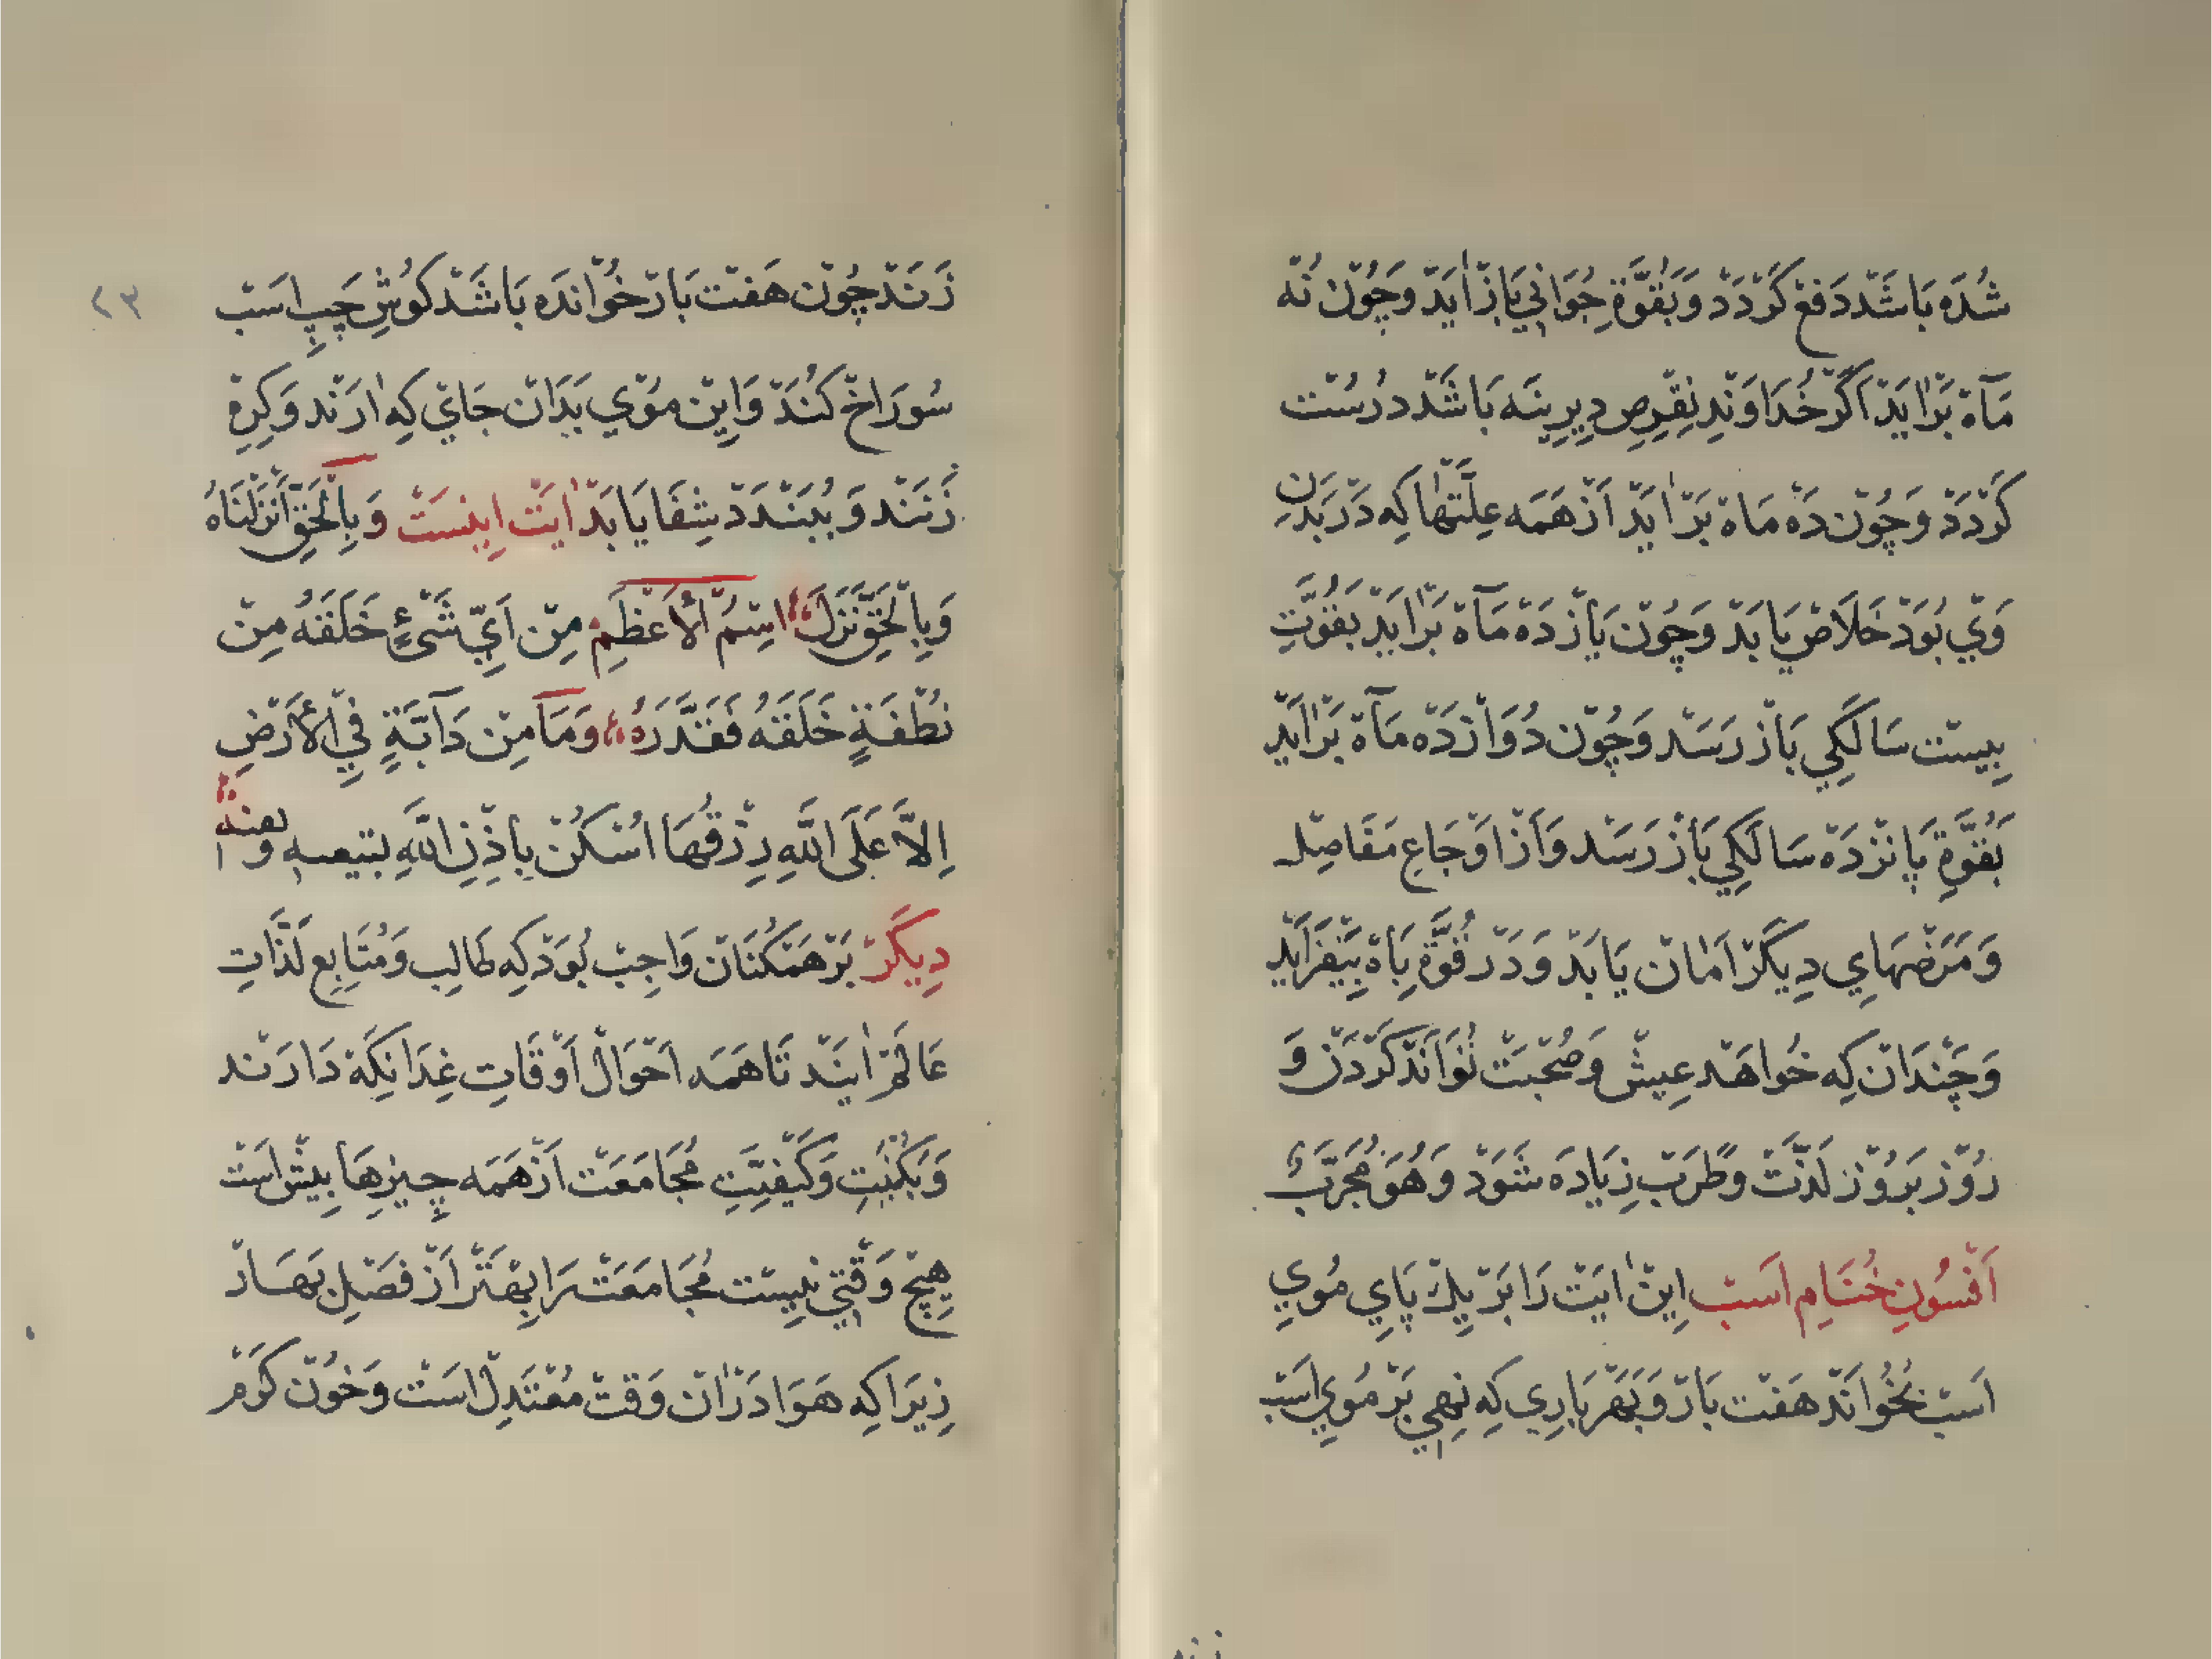 شُدَه بَاشَدْ دَفْع كَرْدَدْ وَبَقُوَّةِ جُوَانِي بَازْ اٰيَدْ وَچُوْنْ نُه
مَآهْ بَرْاٰيَدْ اَكَرْ خُدَاوَنْدِ نِقْرِصِ دِيرِينَه بَاشَدْ دُرُسْت
كَرْدَدْ وَچُوْن دَهْ مَاه بَرْاٰيَدْ اَزْ هَمَه عِلَّتْهَا كِه دَرْ بَدَنِ
وَيْ بُوَدْ خَلَاصْ يَابَدْ وَچُوْن يَازْدَه مَآه بَرْاٰيَدْ بَقُوَّتِ
بِيسْت سَالَكِي بَازْ رَسَدْ وَچُوْن دُوَازْدَه مَآه بَرْاٰيَدْ
بَقُوَّةِ پَانْزْدَه سَالَكِي بَازْ رَسَدْ وَاَزْ اَوْجَاعِ مَفَاصِلْ
وَمَرَضْهَايِ دِيكَرْ اَمَانْ يَابَدْ وَدَرْ قُوَّةِ بَاهْ بِيَفْزَايَدْ
وَچَنْدَانْ كِه خُوَاهَدْ عِيشْ وَصُحْبَتْ تُوَانَدْ كَرْدَنْ وَ
رُوْزْ بَرُوْزْ لَذَّتْ وَطَرَبْ زِيَادَه شَوَدْ وَهُوَ مُجَرَّبٌ
اَفْسُونِ خُنَامِ اَسَبْ اِينْ اٰيَتْ رَا بَرْ يِكْ پَايِ مُويِ
اَسَبْ بَخُوَانَدْ هَفْت بَارْ وَبَهَرْ بَارِي كِه نِهِي بَرْ مُويِ اَسَبْ
زَنَدْ چُوْن هَفْت بَارْ خُوَانْدَه بَاشَدْ كُوشِ چَپِ اَسَبْ
سُورَاخْ كُنَدْ وَاِيْن مُوْي بَدَانْ جَايْ كِه اٰرَنْد وَكِرِهْ
زَنَنْد وَبُبَنْدَدْ شِفَا يَابَدْ اٰيَتْ اِينَسْتْ وَبِالْحَقِّ اَنْزَلْنَاهُ
وَبِالْحَقِّ نَزَلَ اِسْمُ الْاَعْظَمِ مِنْ اَيِّ شَىْءٍ خَلَقَهُ مِنْ
نُطْفَةٍ خَلَقَهُ فَقَدَّرَهُ وَمَا مِنْ دَآبَّةٍ فِي الْاَرْضِ
اِلَّا عَلَى اللَّهِ رِزْقُهَا اُسْكُنْ بِاِذْنِ اللَّهِ
دِيكَرْ بَرْ هَمْكُنَانْ وَاجِبْ بُوَدْ كِه طَالِب وَمُتَابِعِ لَذَّاتِ
عَالَمْ اٰيَنْد تَا هَمَه اَحْوَالْ اَوْقَاتِ غِذَا نِكَهْ دَارَنْد
وَبَكَمِّيَتِ وَكَيْفِيَّتِ مُجَامَعَتْ اَزْ هَمَه چِيزْهَا بِيشْ اَسْت
هِيچْ وَقْتِي نِيسْت مُجَامَعَتْ رَا بِهْتَرْ اَزْ فَصْلِ بَهَارْ
زِيرَا كِه هَوَا دَرْ اٰنْ وَقْتْ مُعْتَدِلْ اَسْتْ وَخُونْ كَرْمْ